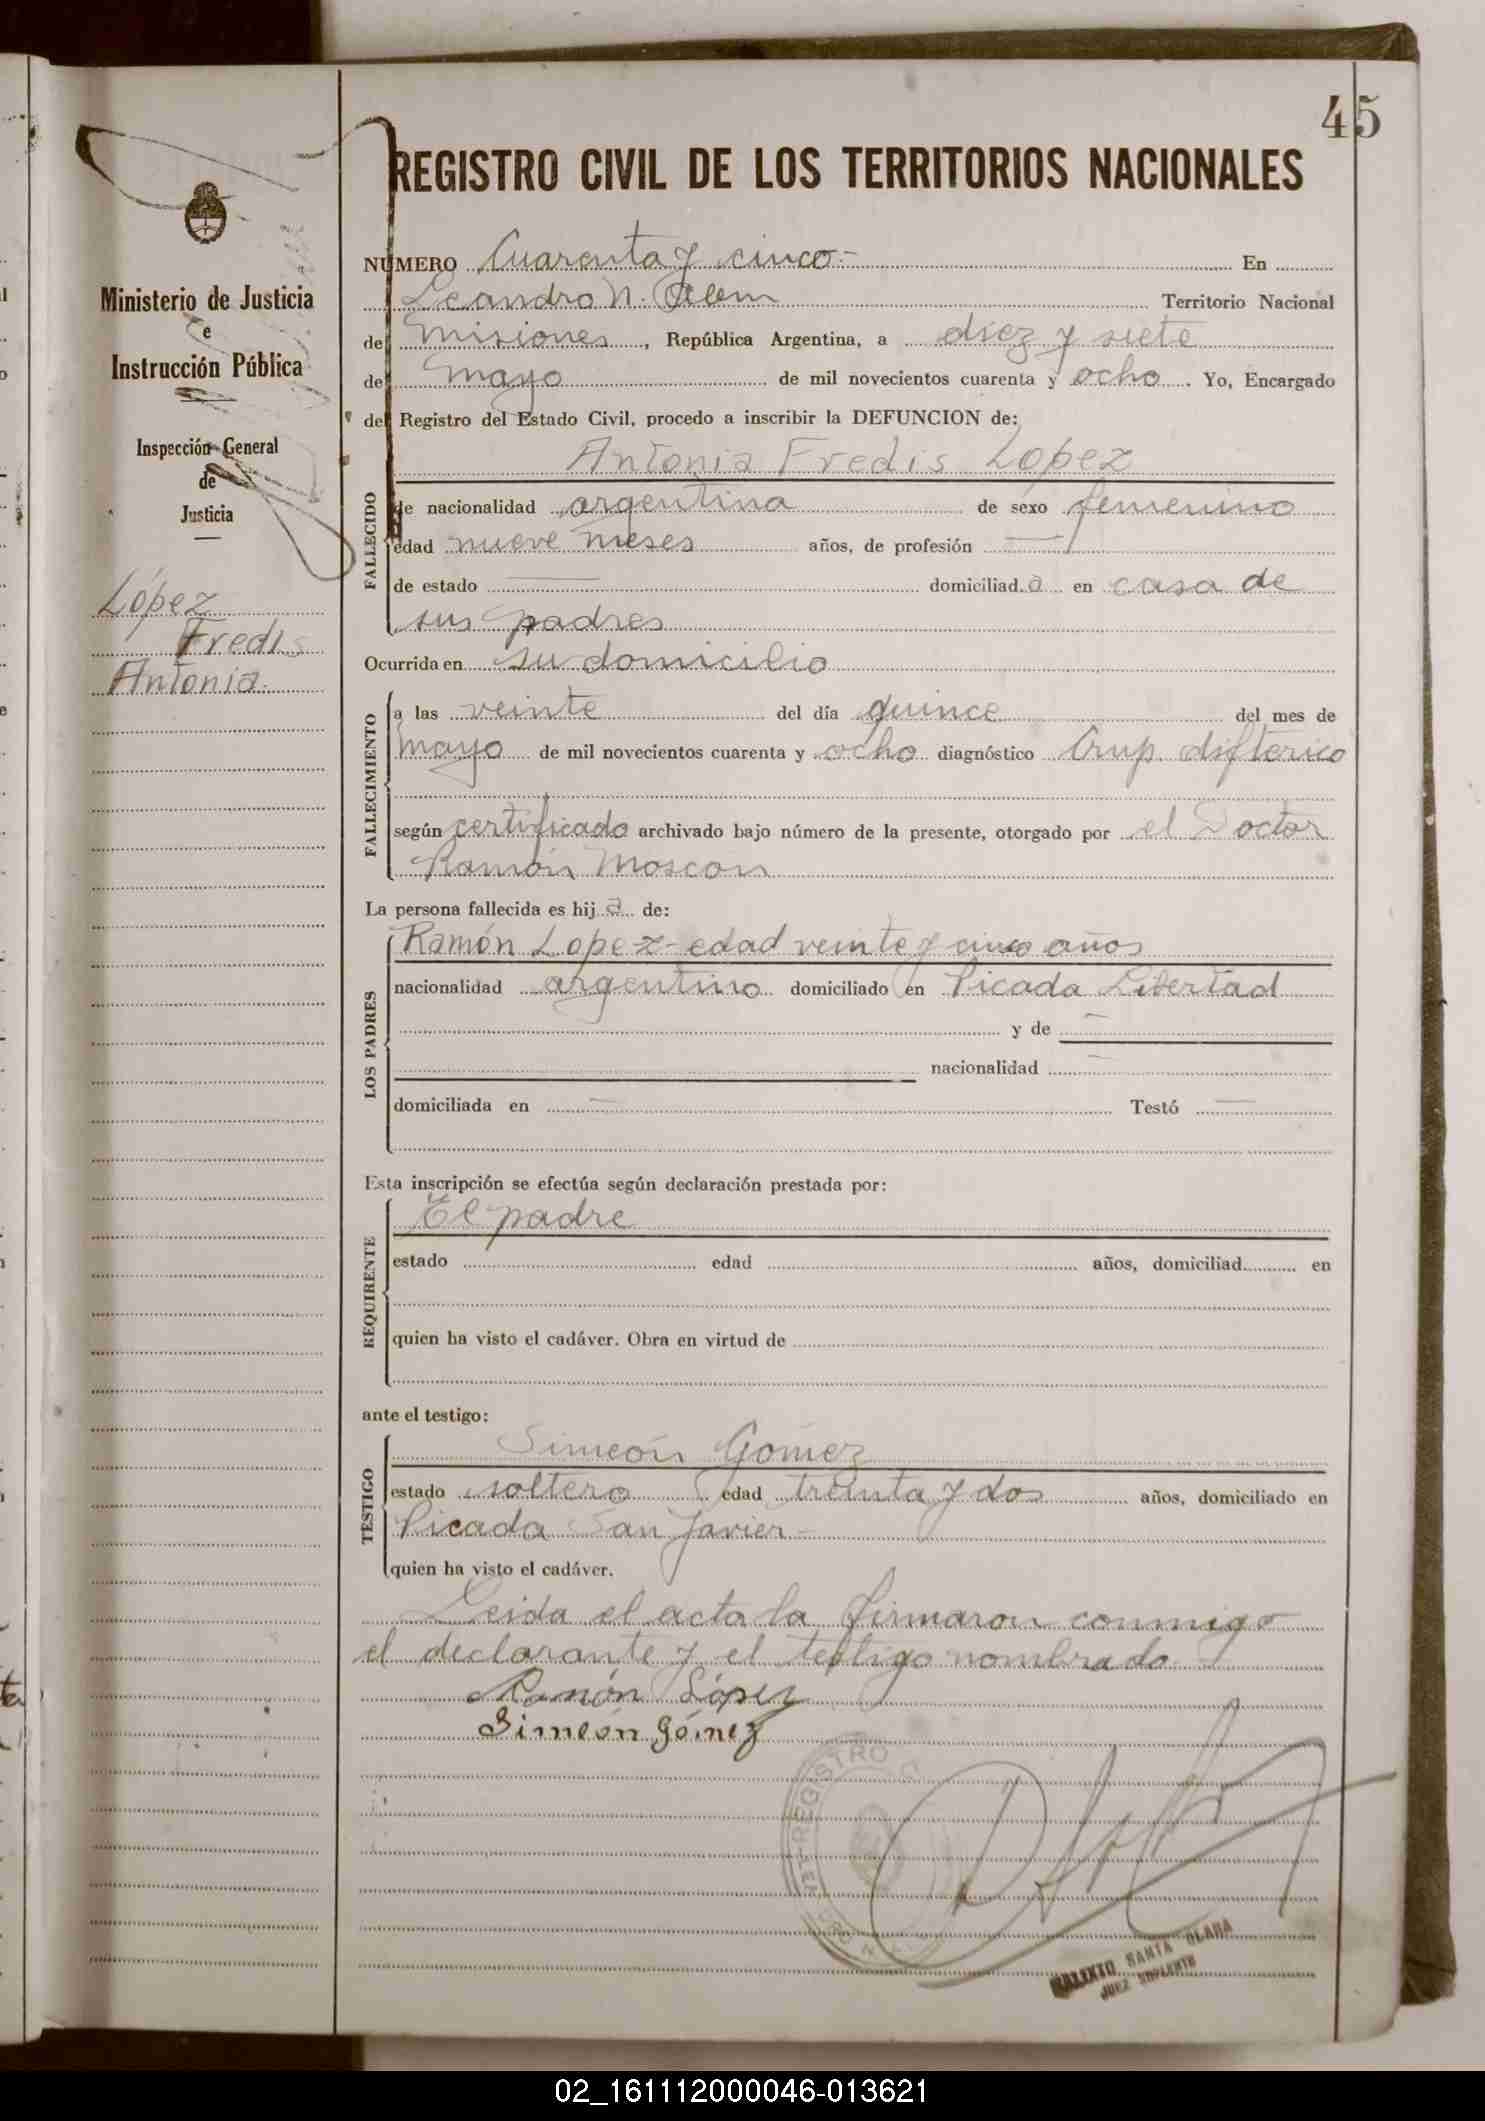 45
REGISTRO CIVIL DE LOS TERRITORIOS NACIONALES
Ministerio de Justicia
e
Instrucción Pública
Inspección General
de
Justicia
López
Fredis
Antonia
NÚMERO Cuarenta y cinco.- En
Leandro N. Alem Territorio Nacional
de Misiones, República Argentina, a diez y siete
de mayo de mil novecientos cuarenta y ocho. Yo, Encargado
del Registro del Estado Civil, procedo a inscribir la DEFUNCION de:
Antonia Fredis Lopez
FALLECIDO
de nacionalidad argentina de sexo femenino
edad nueve meses años, de profesión —
de estado — domiciliad a en casa de
sus padres
Ocurrida en su domicilio
FALLECIMIENTO
a las veinte del día quince del mes de
mayo de mil novecientos cuarenta y ocho diagnóstico Crup diftérico
según certificado archivado bajo número de la presente, otorgado por el Doctor
Ramón Moscon
La persona fallecida es hij a de:
LOS PADRES
Ramón Lopez - edad veinte y cinco años
nacionalidad argentino domiciliado en Picada Libertad
y de —
nacionalidad —
domiciliada en — Testó —
Esta inscripción se efectúa según declaración prestada por:
REQUIRENTE
El padre
estado edad años, domiciliad en
quien ha visto el cadáver. Obra en virtud de
ante el testigo:
TESTIGO
Simeón Gomez
estado soltero edad treinta y dos años, domiciliado en
Picada San Javier -
quien ha visto el cadáver.
Leida el acta la firmaron conmigo
el declarante y el testigo nombrado
Ramón López
Simeón Gómez
REGISTRO
CALIXTO SANTA CLARA
JUEZ SUPLENTE
02_161112000046-013621